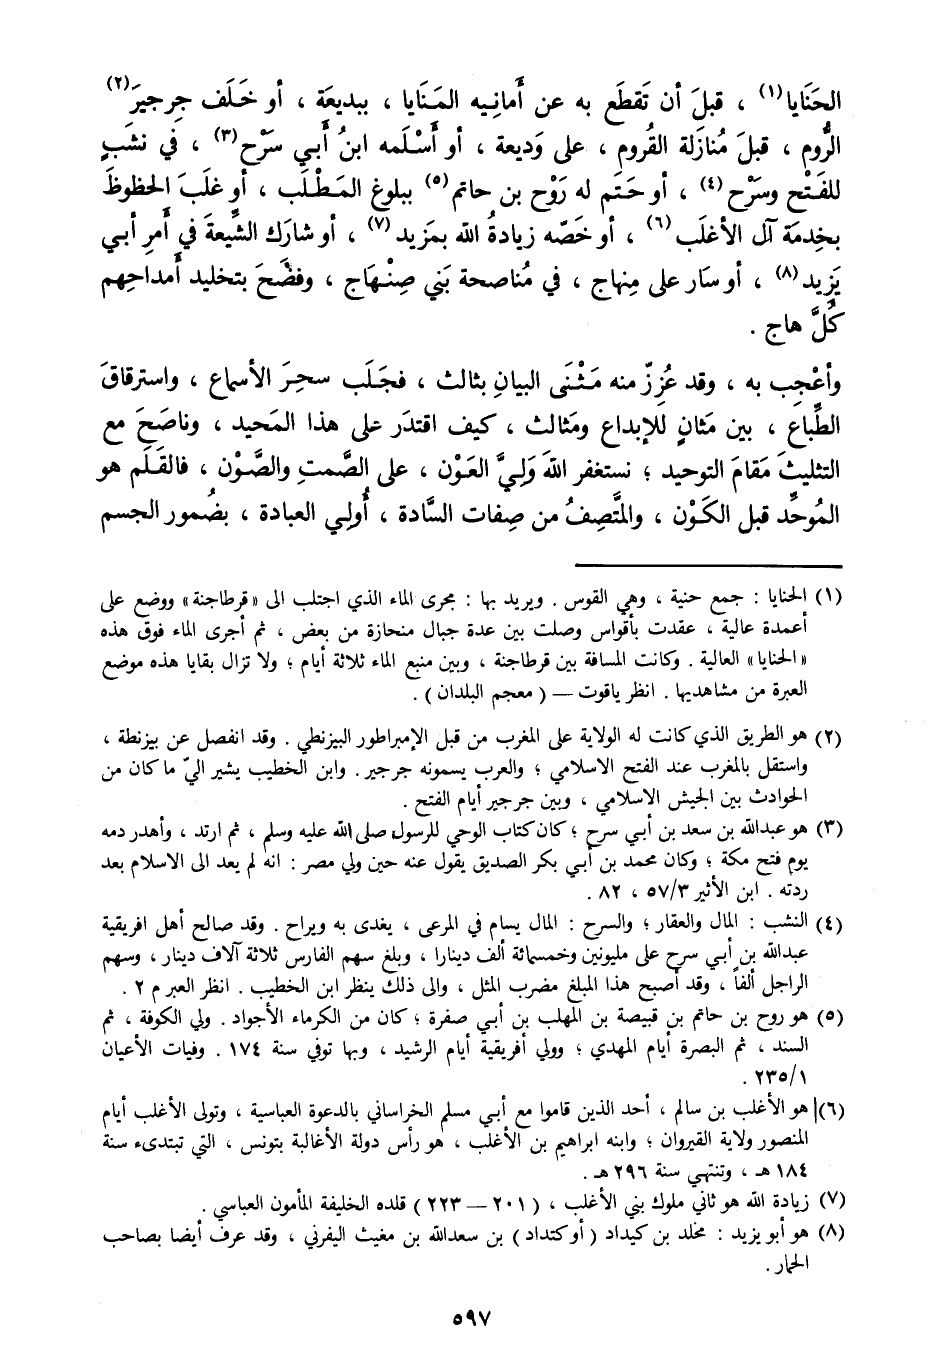 الحَنَايا(١) ، قبلَ أن تَقطَع به عن أَمانِيه المَنَايا ، ببديعَة ، أو خَلَف جِرجيرَ(٢)
الرُّوم ، قبلَ مُنازَلة القُروم ، على وَديعة ، أو أَسْلَمه ابنُ أَبي سَرْح(٣) ، في نشَبٍ
للفَتْح وسَرْح(٤) ، أو حَتَم له رَوْح بن حاتم(٥) ببلوغ المَطْلَب ، أو غلَبَ الحظوظَ
بخِدمَة آل الأغلَب(٦) ، أو خَصّه زيادةُ الله بمَزيد(٧) ، أو شارَك الشِّيعةَ في أَمرِ أبي
يَزِيد(٨) ، أو سَار على مِنهاج ، في مُناصحة بَني صِنْهاج ، وفضَّحَ بتخليد أَمداحِهم
كُلَّ هاج .
وأعْجِب به ، وقد عُزِزّ منه مَثْنَى البيانِ بثالث ، فجَلَب سحرَ الأسماع ، واسترقاقَ
الطِّباع ، بين مَثانٍ للإبداع ومَثالث ، كيف اقتدَر على هذا المَحيد ، وناصَحَ مع
التثليثَ مَقامَ التوحيد ؛ نستغفر اللهَ وَلِيَّ العَوْن ، على الصَّمتِ والصَّوْن ، فالقَلَم هو
المُوحِّد قبل الكَوْن ، والمتَّصِفُ من صِفات السَّادة ، أُولي العبادة ، بضُمور الجسم
(١) الحنايا : جمع حنية ، وهي القوس . ويريد بها : مجرى الماء الذي اجتلب الى «قرطاجنة» ووضع على
أعمدة عالية ، عقدت بأقواس وصلت بين عدة جبال منحازة من بعض ، ثم أجرى الماء فوق هذه
«الحنايا» العالية . وكانت المسافة بين قرطاجنة ، وبين منبع الماء ثلاثة أيام ؛ ولا تزال بقايا هذه موضع
العبرة من مشاهديها . انظر ياقوت — ( معجم البلدان ) .
(٢) هو الطريق الذي كانت له الولاية على المغرب من قبل الإمبراطور البيزنطي . وقد انفصل عن بيزنطة ،
واستقل بالمغرب عند الفتح الاسلامي ؛ والعرب يسمونه جرجير . وابن الخطيب يشير اليّ ما كان من
الحوادث بين الجيش الاسلامي ، وبين جرجير أيام الفتح .
(٣) هو عبدالله بن سعد بن أبي سرح ؛ كان كتاب الوحي للرسول صلى الله عليه وسلم ، ثم ارتد ، وأهدر دمه
يوم فتح مكة ؛ وكان محمد بن أبي بكر الصديق يقول عنه حين ولي مصر : انه لم يعد الى الاسلام بعد
ردته . ابن الأثير ٥٧/٣ ، ٨٢ .
(٤) النشب : المال والعقار ؛ والسرح : المال يسام في المرعى ، يغدى به ويراح . وقد صالح أهل افريقية
عبدالله بن أبي سرح على مليونين وخمسمائة ألف دينارا ، وبلغ سهم الفارس ثلاثة آلاف دينار ، وسهم
الراجل ألفاً ، وقد أصبح هذا المبلغ مضرب المثل ، والى ذلك ينظر ابن الخطيب . انظر العبر م ٢ .
(٥) هو روح بن حاتم بن قبيصة بن المهلب بن أبي صفرة ؛ كان من الكرماء الأجواد . ولي الكوفة ، ثم
السند ، ثم البصرة أيام المهدي ؛ وولي أفريقية أيام الرشيد ، وبها توفي سنة ١٧٤ . وفيات الأعيان
٢٣٥/١ .
(٦) هو الأغلب بن سالم ، أحد الذين قاموا مع أبي مسلم الخراساني بالدعوة العباسية ، وتولى الأغلب أيام
المنصور ولاية القيروان ؛ وابنه ابراهيم بن الأغلب ، هو رأس دولة الأغالبة بتونس ، التي تبتدىء سنة
١٨٤ هـ ، وتنتهي سنة ٢٩٦ هـ .
(٧) زيادة الله هو ثاني ملوك بني الأغلب ، ( ٢٠١ — ٢٢٣ ) قلده الخليفة المأمون العباسي .
(٨) هو أبو يزيد : مخلد بن كيداد ( أو كتداد ) بن سعدالله بن مغيث اليفرني ، وقد عرف أيضا بصاحب
الحمار .
٥٩٧